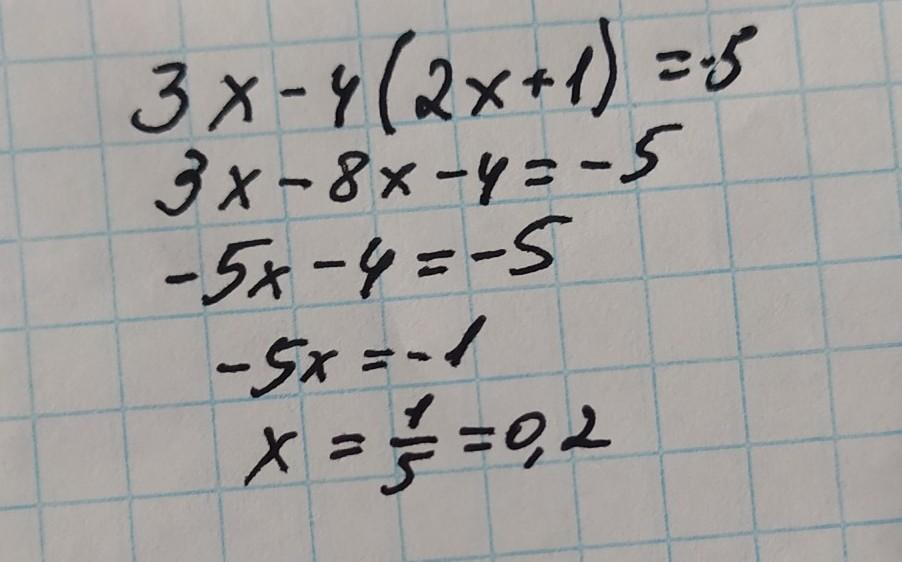 3x-4(2x+1)=-5
3x-8x-4=-5
-5x-4=-5
-5x=-1
x=1/5=0,2